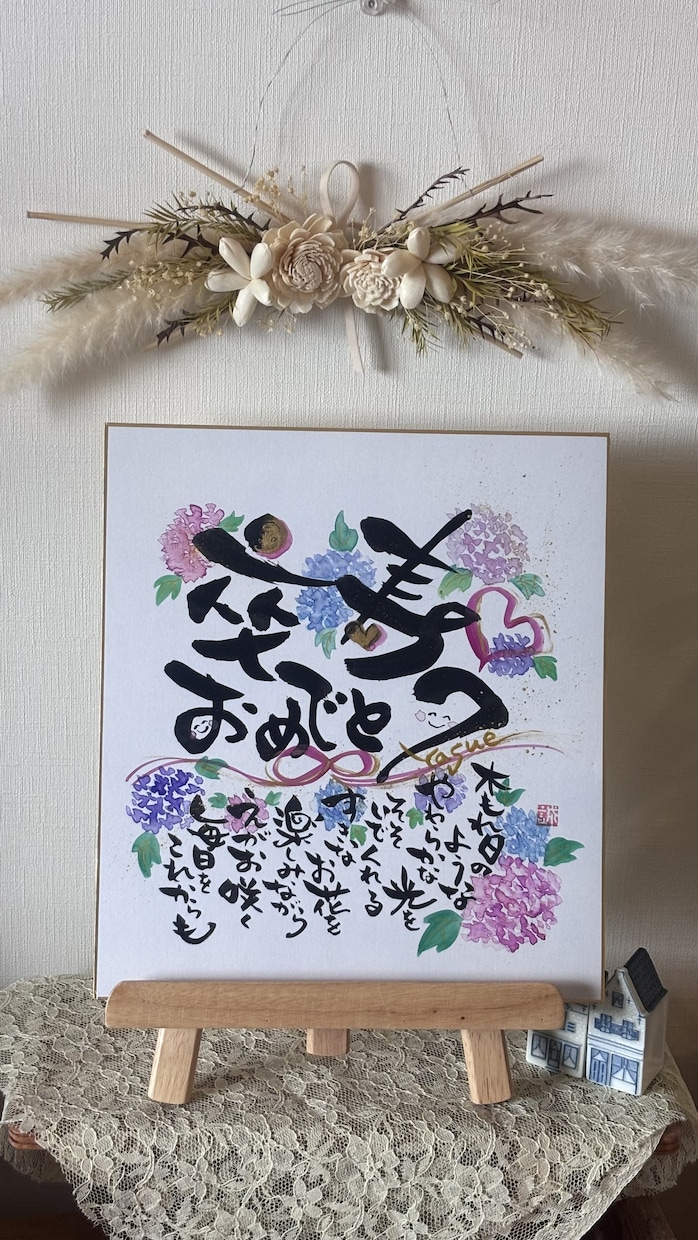 傘寿
おめでとう
Yasue
木もれ日の
ような
やわらかな
光を
そそ
いでくれる
すきな
お花を
楽しみながら
えがお咲く
毎日を
これからも